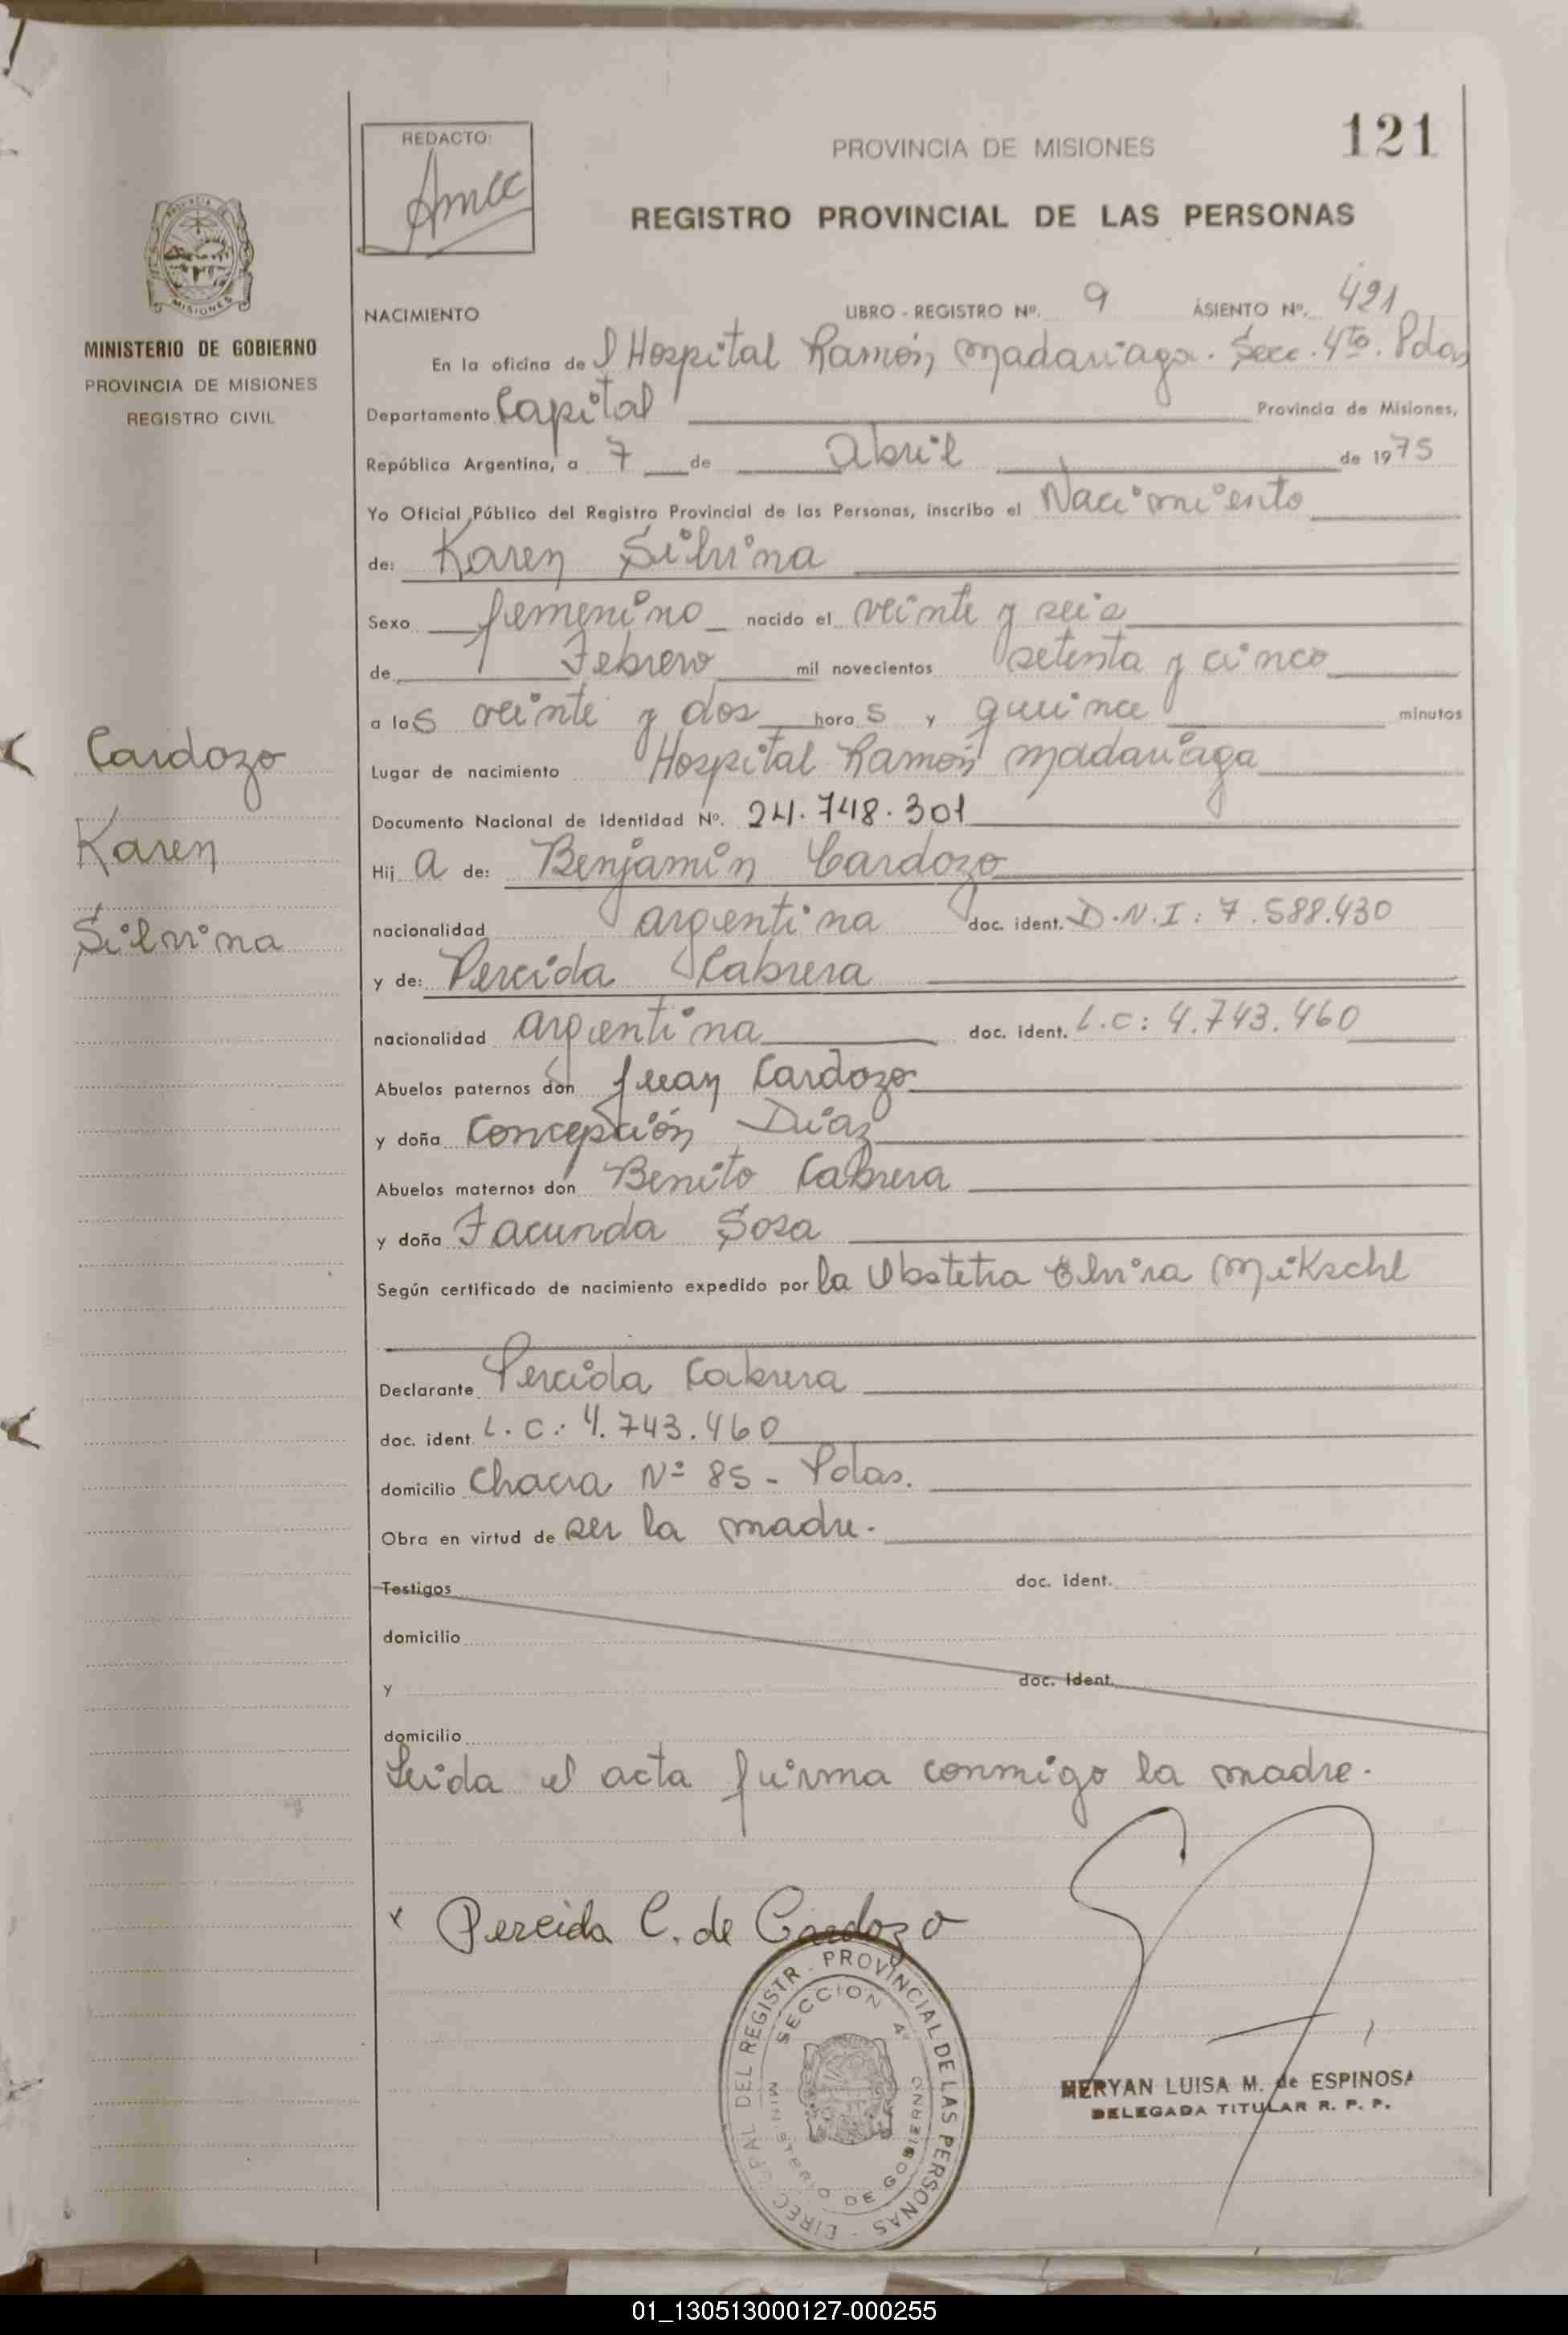 121
REDACTO:
PROVINCIA DE MISIONES
REGISTRO PROVINCIAL DE LAS PERSONAS
MISIONES
MINISTERIO DE GOBIERNO
PROVINCIA DE MISIONES
REGISTRO CIVIL
Cardozo
Karen
Silvina
NACIMIENTO LIBRO - REGISTRO Nº. 9 ASIENTO Nº. 421
En la oficina de l Hospital Ramón Madariaga. Secc. 4ta. Pdas
Departamento Capital Provincia de Misiones,
República Argentina, a 7 de Abril de 1975
Yo Oficial Público del Registro Provincial de las Personas, inscribo el Nacimiento
de: Karen Silvina
Sexo femenino nacido el veinte y seis
de Febrero mil novecientos setenta y cinco
a las veinte y dos hora s y quince minutos
Lugar de nacimiento Hospital Ramón Madariaga
Documento Nacional de Identidad Nº. 24.748.301
Hij a de: Benjamín Cardozo
nacionalidad argentina doc. ident. D.N.I: 7.588.430
y de: Percida Cabrera
nacionalidad argentina doc. ident. L.C: 4.743.460
Abuelos paternos don Juan Cardozo
y doña Concepción Díaz
Abuelos maternos don Benito Cabrera
y doña Facunda Sosa
Según certificado de nacimiento expedido por la Obstetra Elvira
Declarante Percida Cabrera
doc. ident. L.C.: 4.743.460
domicilio Chacra Nº 85 - Pdas.
Obra en virtud de ser la madre.
Testigos doc. ident.
domicilio
y doc. ident.
domicilio
Leida el acta firma conmigo la madre.
x Percida C. de Cardozo
DIREC. GRAL DEL REGISTR. PROVINCIAL DE LAS PERSONAS
SECCION 4ª
MINISTERIO DE GOBIERNO
MERYAN LUISA M. de ESPINOSA
DELEGADA TITULAR R. P. P.
01_130513000127-000255